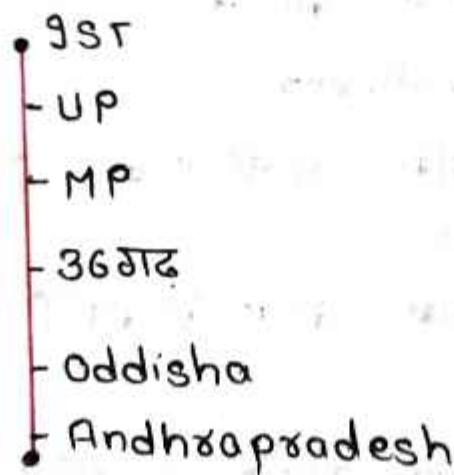 IST
UP
MP
36गढ
Oddisha
Andhrapradesh